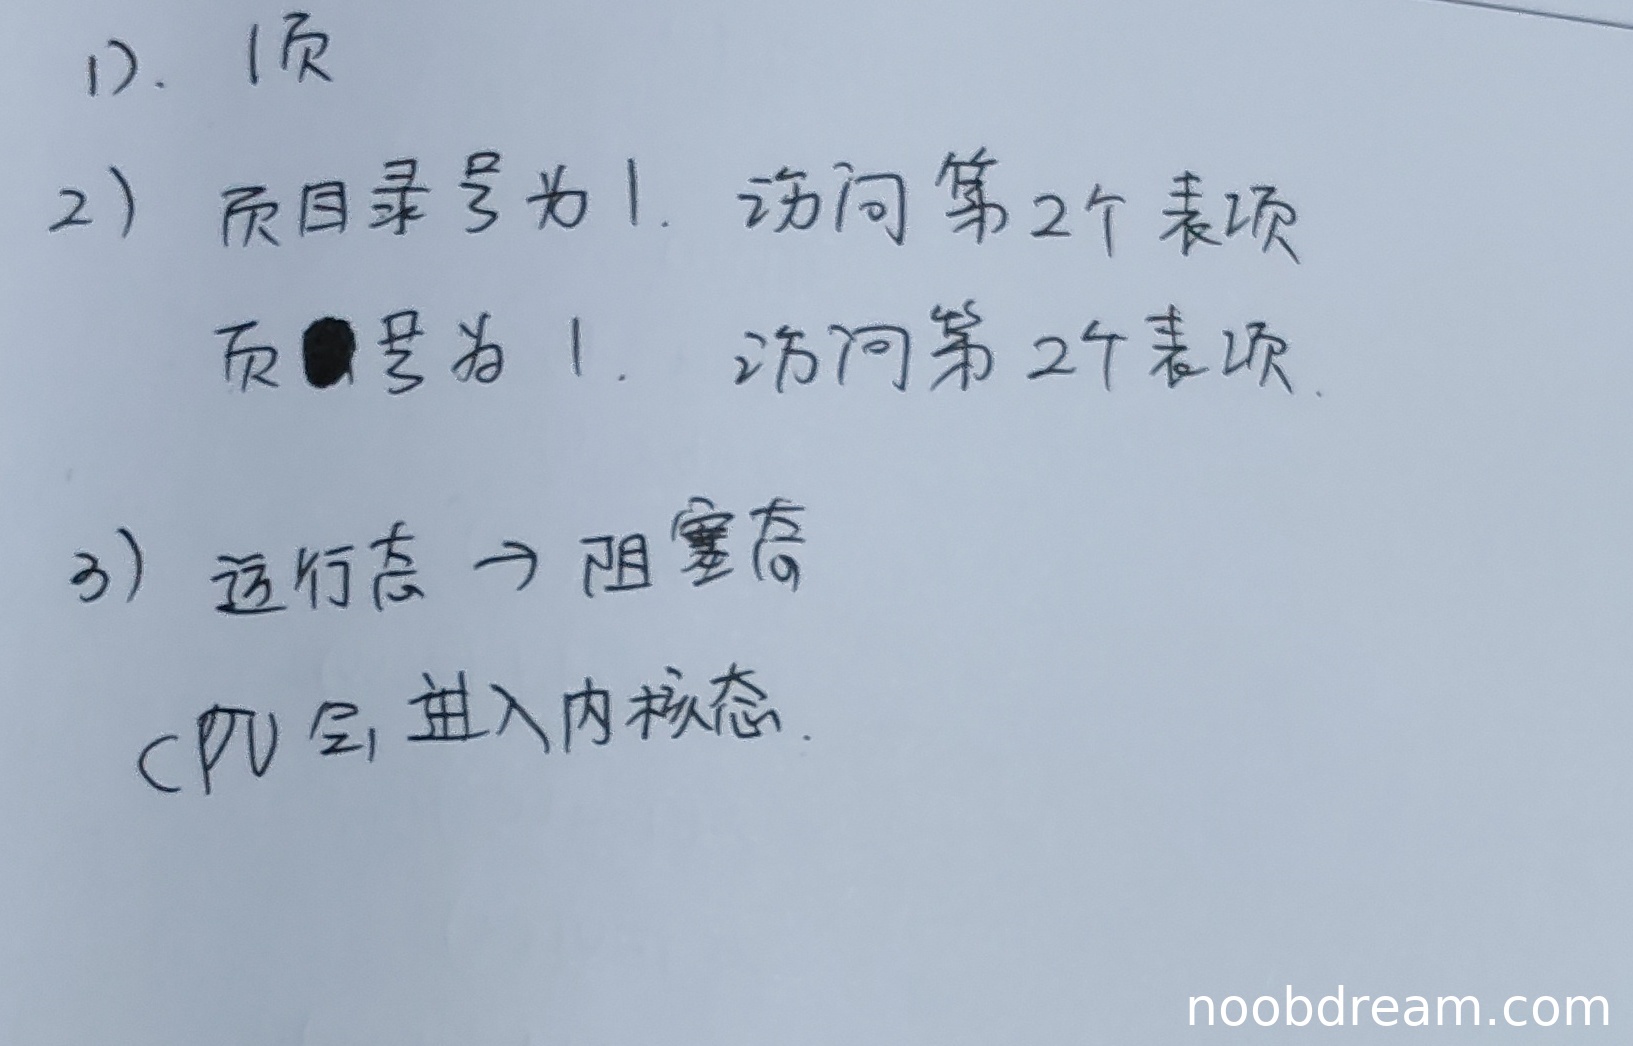 1). 1页
2) 页目录号为1. 访问第2个表项
页号为1. 访问第2个表项.
3) 运行态→阻塞态
CPU会进入内核态.
noobdream.com